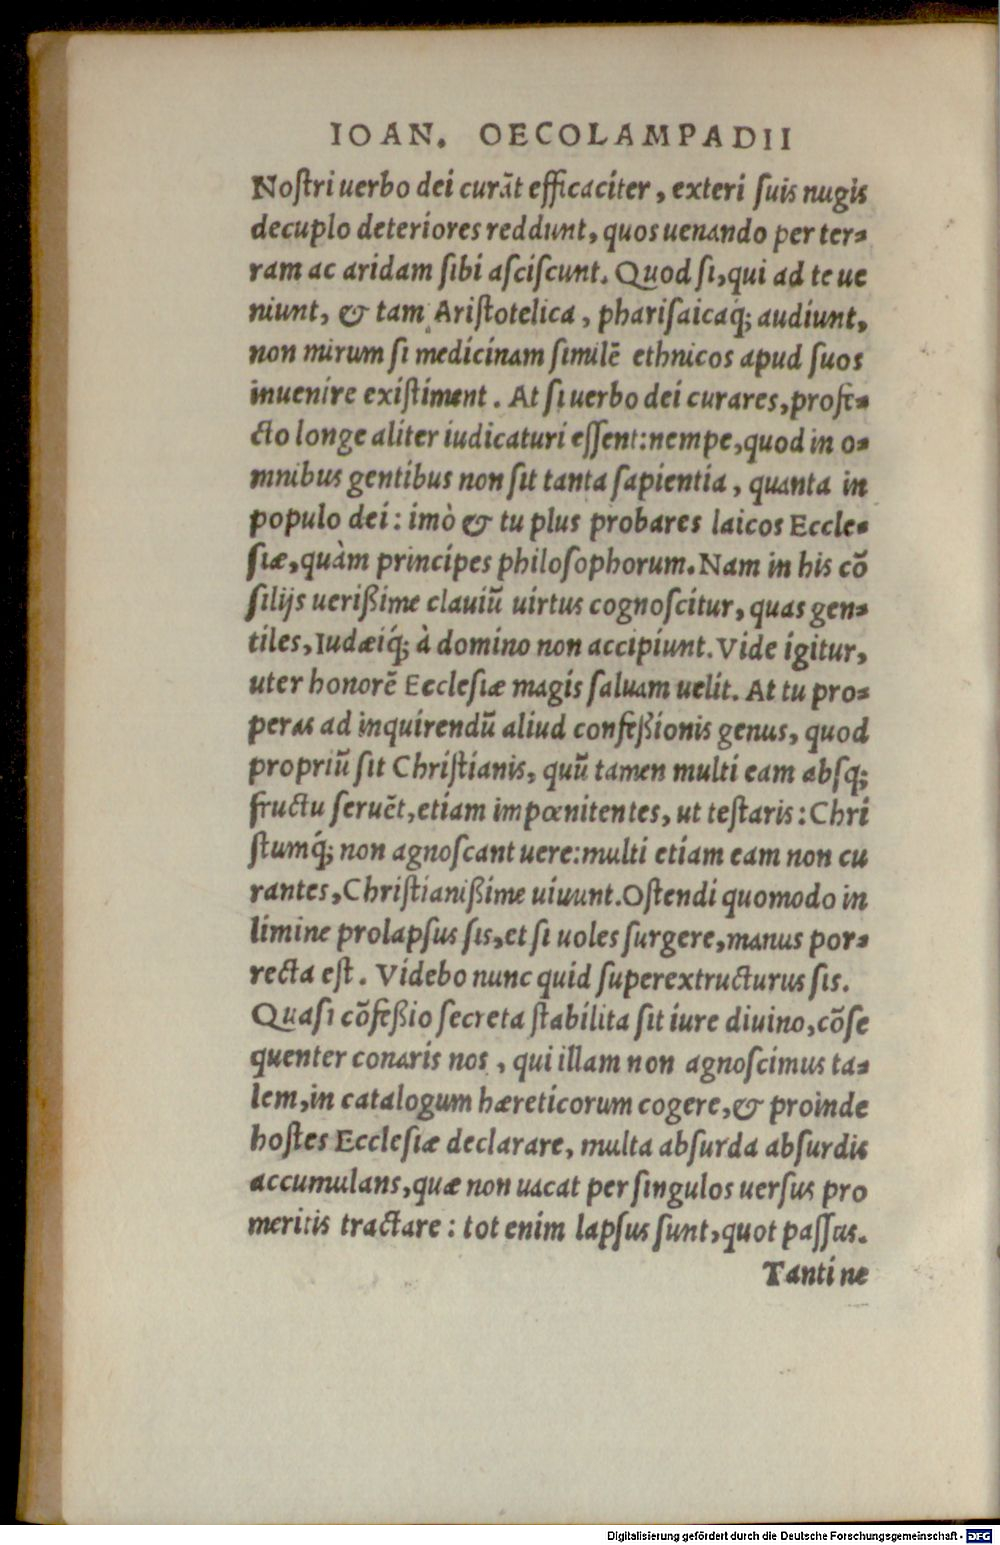 IOAN. OECOLAMPADII
Noſtri uerbo dei curāt efficaciter, exteri ſuis nugis
decuplo deteriores reddunt, quos uenando per ter-
ram ac aridam ſibi aſciſcunt. Quod ſi, qui ad te ue
niunt, & tam Ariſtotelica, phariſaicaq́; audiunt,
non mirum ſi medicinam ſimilē ethnicos apud ſuos
inuenire exiſtiment. At ſi uerbo dei curares, profe-
cto longe aliter iudicaturi eſſent: nempe, quod in o-
mnibus gentibus non ſit tanta ſapientia, quanta in
populo dei: imò & tu plus probares laicos Eccle-
ſiæ, quàm principes philoſophorum. Nam in his cō
ſilijs uerißime clauiū uirtus cognoſcitur, quas gen-
tiles, Iudæiq́; à domino non accipiunt. Vide igitur,
uter honorē Eccleſiæ magis ſaluam uelit. At tu pro-
peras ad inquirendū aliud confeßionis genus, quod
propriū ſit Chriſtianis, quū tamen multi eam abſq;
fructu ſeruēt, etiam impœnitentes, ut teſtaris: Chri
ſtumq́; non agnoſcant uere: multi etiam eam non cu
rantes, Chriſtianißime uiuunt. Oſtendi quomodo in
limine prolapſus ſis, et ſi uoles ſurgere, manus por-
recta eſt. Videbo nunc quid superextructurus ſis.
Quaſi cōfeßio ſecreta ſtabilita ſit iure diuino, cōſe
quenter conaris nos, qui illam non agnoſcimus ta-
lem, in catalogum hæreticorum cogere, & proinde
hoſtes Eccleſiæ declarare, multa abſurda abſurdis
accumulans, quæ non uacat per ſingulos uerſus pro
meritis tractare: tot enim lapſus ſunt, quot paſſus.
Tanti ne
Digitalisierung gefördert durch die Deutsche Forschungsgemeinschaft - DFG